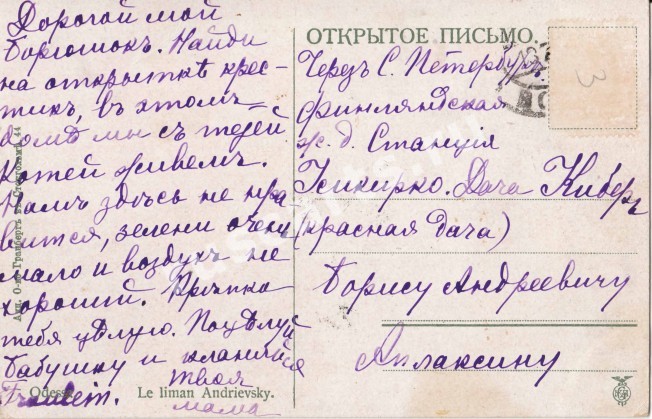 Дорогой мой
Борюшокъ. Найди
на открыткѣ крес-
тикъ, въ этомъ
домѣ мы съ тетей
Котей живемъ.
Намъ здѣсь не нра-
вится, зелени очень
мало и воздухъ не
хорошій. Крѣпко
тебя цѣлую. Поцѣлуй
Бабушку и кланяйся
Fräulein.
твоя
мама
Odessa. Le liman Andrievsky.
ОТКРЫТОЕ ПИСЬМО.
Черезъ С. Петербургъ
Финляндская
ж. д. Станція
Усикирко. Дача Киберъ
(красная дача)
Борису Андреевичу
Апраксину
3
Акц. О-во Гранбергъ въ Стокгольмѣ